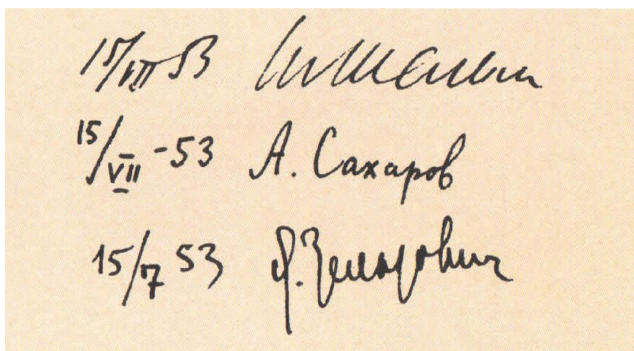 15/VII 53
15/VII -53 А. Сахаров
15/7 53 Я. Зельдович